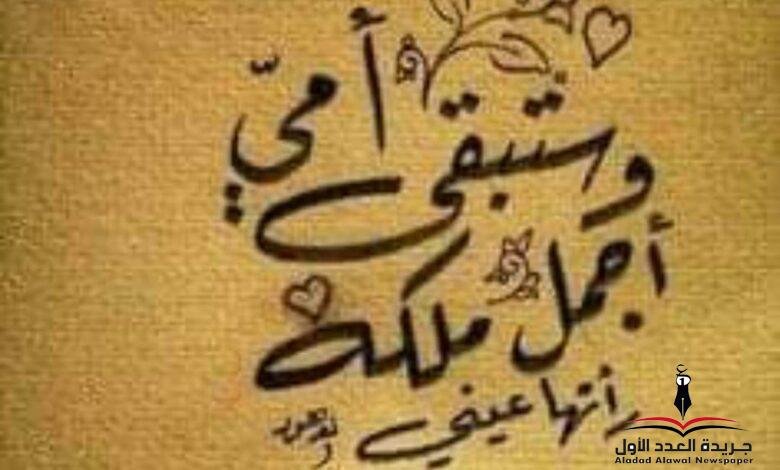 وستبقى أمّي
أجمل ملكة
رأتها عيني
جريدة العدد الأول
Aladad Alawal Newspaper